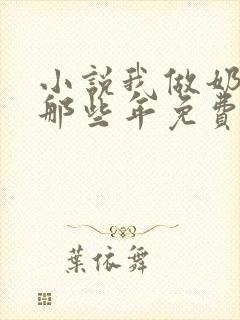 小説我做奶
那些年免費
葉依舞